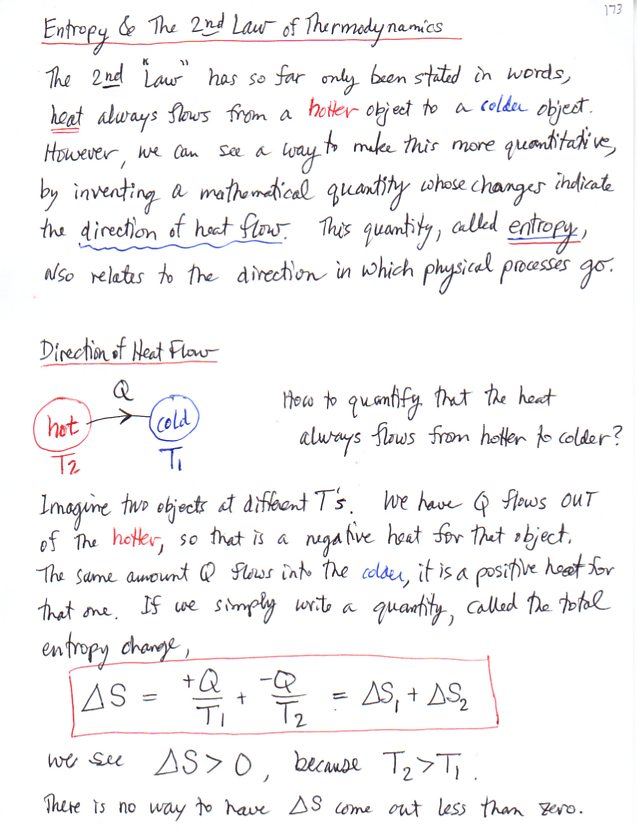 173
Entropy & The 2nd Law of Thermodynamics
The 2nd "Law" has so far only been stated in words,
heat always flows from a hotter object to a colder object.
However, we can see a way to make this more quantitative,
by inventing a mathematical quantity whose changes indicate
the direction of heat flow. This quantity, called entropy,
also relates to the direction in which physical processes go.
Direction of Heat Flow
Q
hot cold
T2 T1
How to quantify that the heat
always flows from hotter to colder?
Imagine two objects at different T's. We have Q flows OUT
of the hotter, so that is a negative heat for that object.
The same amount Q flows into the colder, it is a positive heat for
that one. If we simply write a quantity, called the total
entropy change,
ΔS = +Q/T₁ + -Q/T₂ = ΔS₁ + ΔS₂
we see ΔS > 0, because T₂ > T₁.
There is no way to have ΔS come out less than zero.